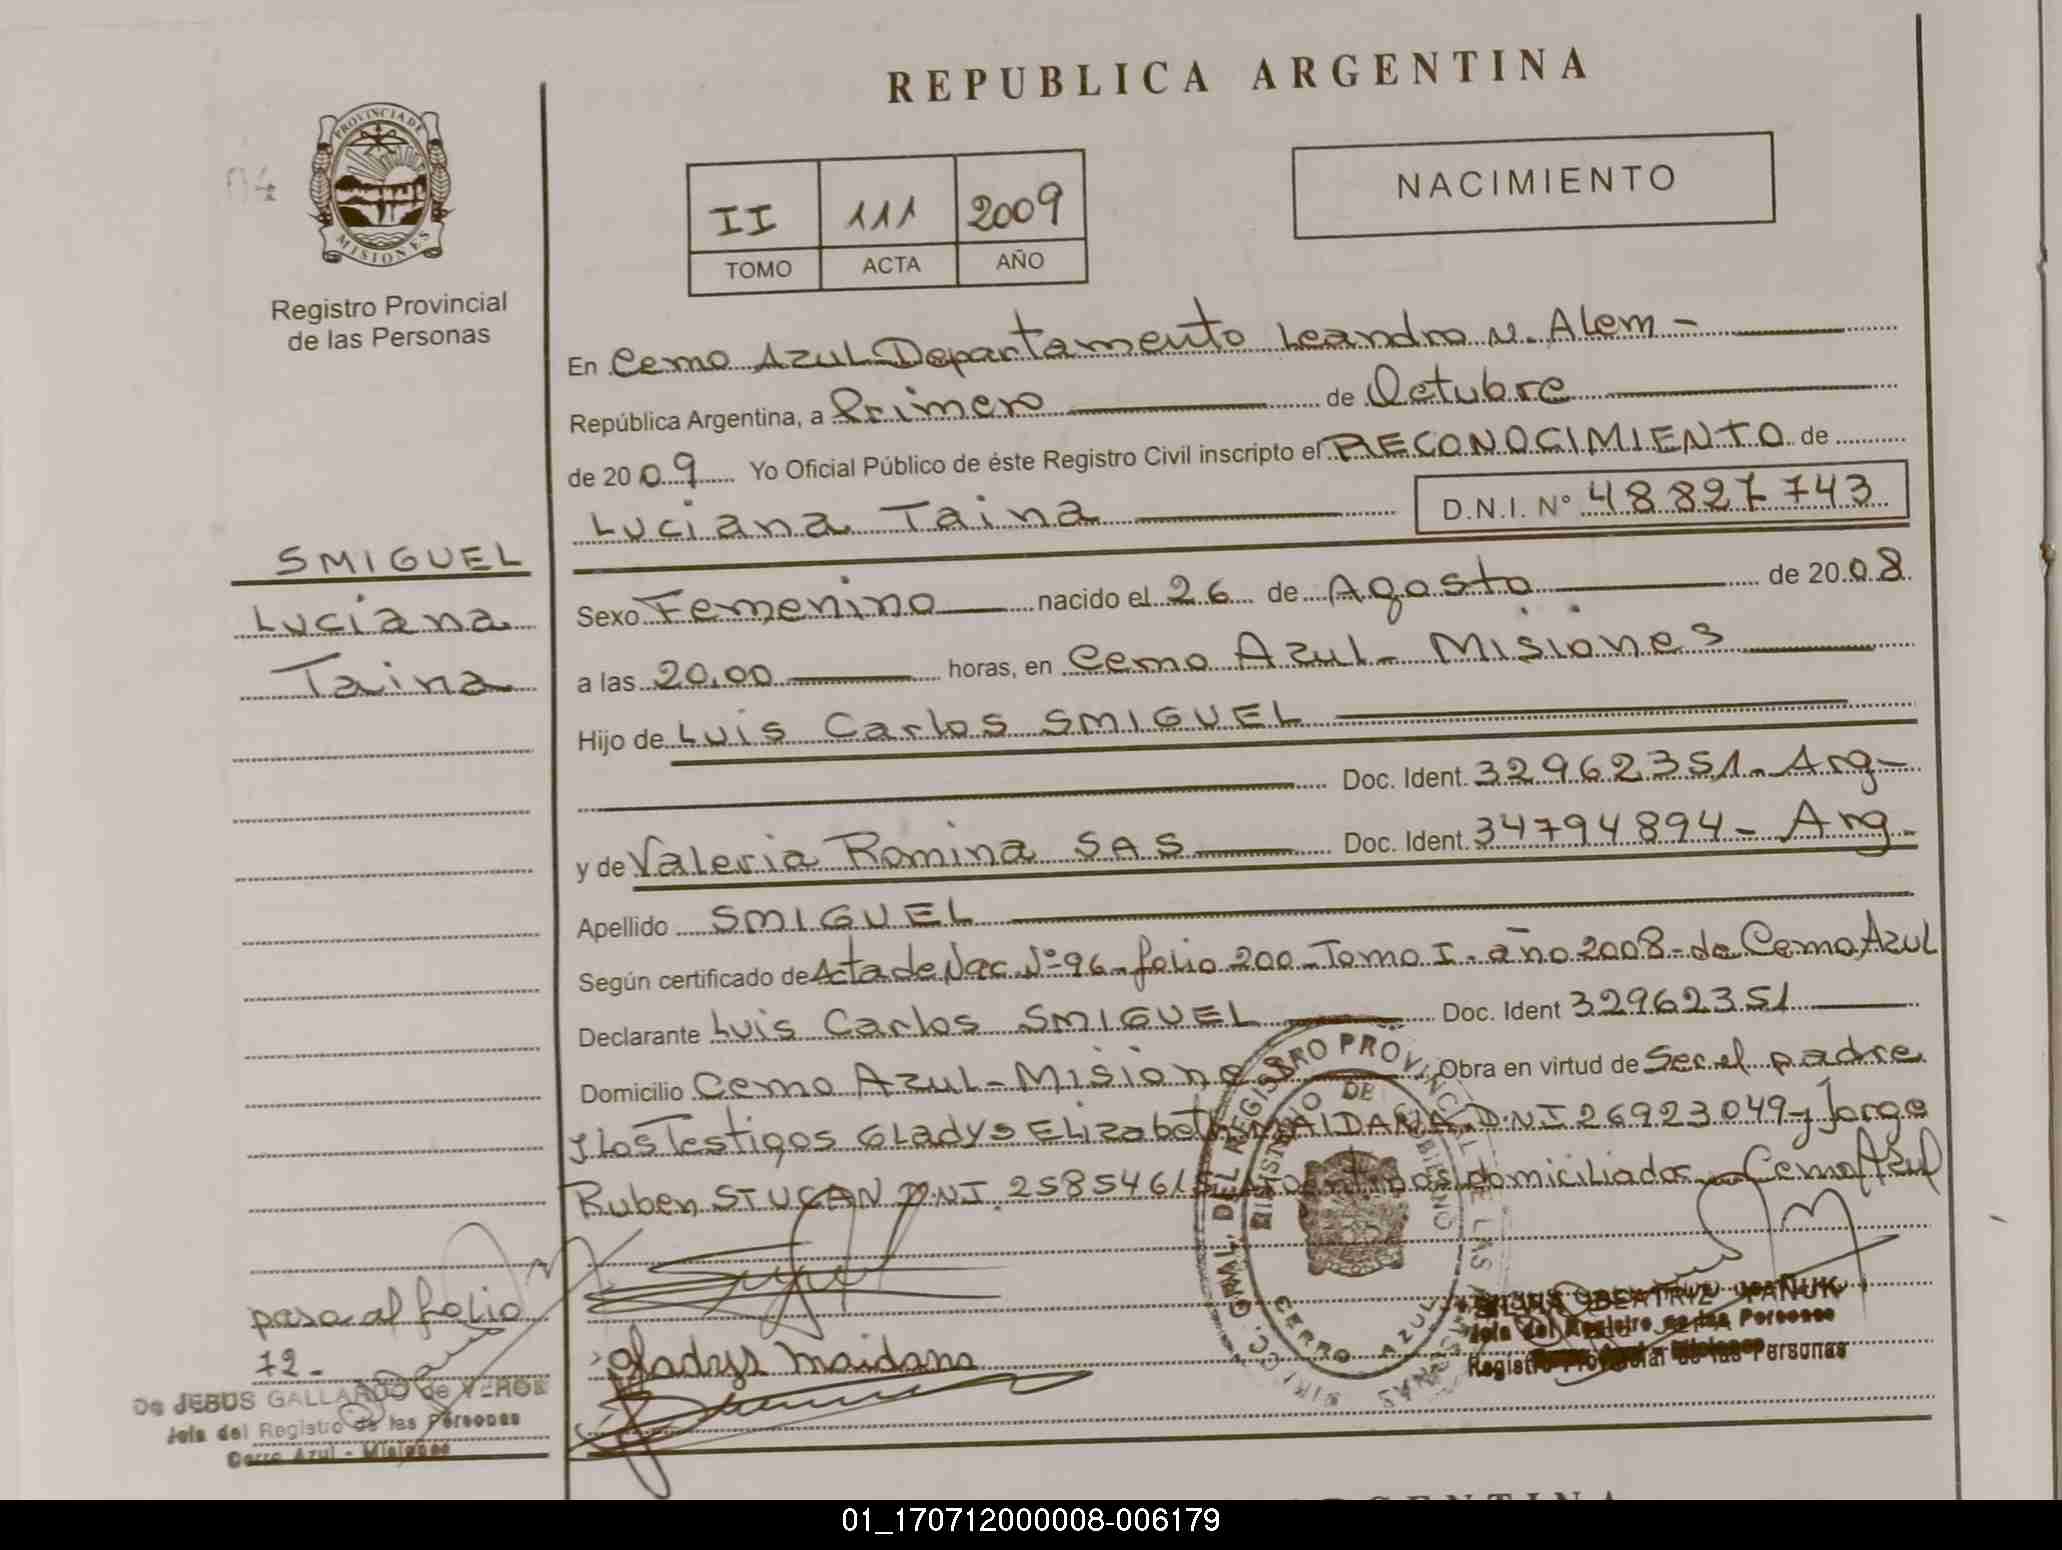 REPUBLICA ARGENTINA
PROVINCIA DE
MISIONES
Registro Provincial
de las Personas
II 111 2009
TOMO ACTA AÑO
NACIMIENTO
En Cerro Azul Departamento Leandro N. Alem -
República Argentina, a Primero de Octubre
de 2009 Yo Oficial Público de éste Registro Civil inscripto el RECONOCIMIENTO de
Luciana Taina D.N.I. N° 48827743
SMIGUEL
Luciana
Taina
Sexo Femenino nacido el 26 de Agosto de 2008
a las 20,00 horas, en Cerro Azul - Misiones
Hijo de Luis Carlos SMIGUEL
Doc. Ident. 32962351 - Arg -
y de Valeria Romina SAS Doc. Ident. 34794894 - Arg
Apellido SMIGUEL
Según certificado de Acta de Nac. Nº 96 - folio 200 - Tomo I - año 2008 - de Cerro Azul
Declarante Luis Carlos SMIGUEL Doc. Ident 32962351
Domicilio Cerro Azul - Misiones Obra en virtud de Ser el padre
y los Testigos Gladys Elizabeth MAIDANA D.N.I 26923049 y Jorge
Ruben STUCAN D.N.I. 2585461 domiciliados Cerro Azul
pasa al folio
72 -
Gladys Maidana
DEL REGISTRO PROVINCIAL DE LAS
CERRO AZUL
De JESUS GALLARDO de
Jefa del Registro de las Personas
Cerro Azul - Misiones
BEATRIZ
Jefa del Registro de las Personas
Registro Provincial de las Personas
01_170712000008-006179